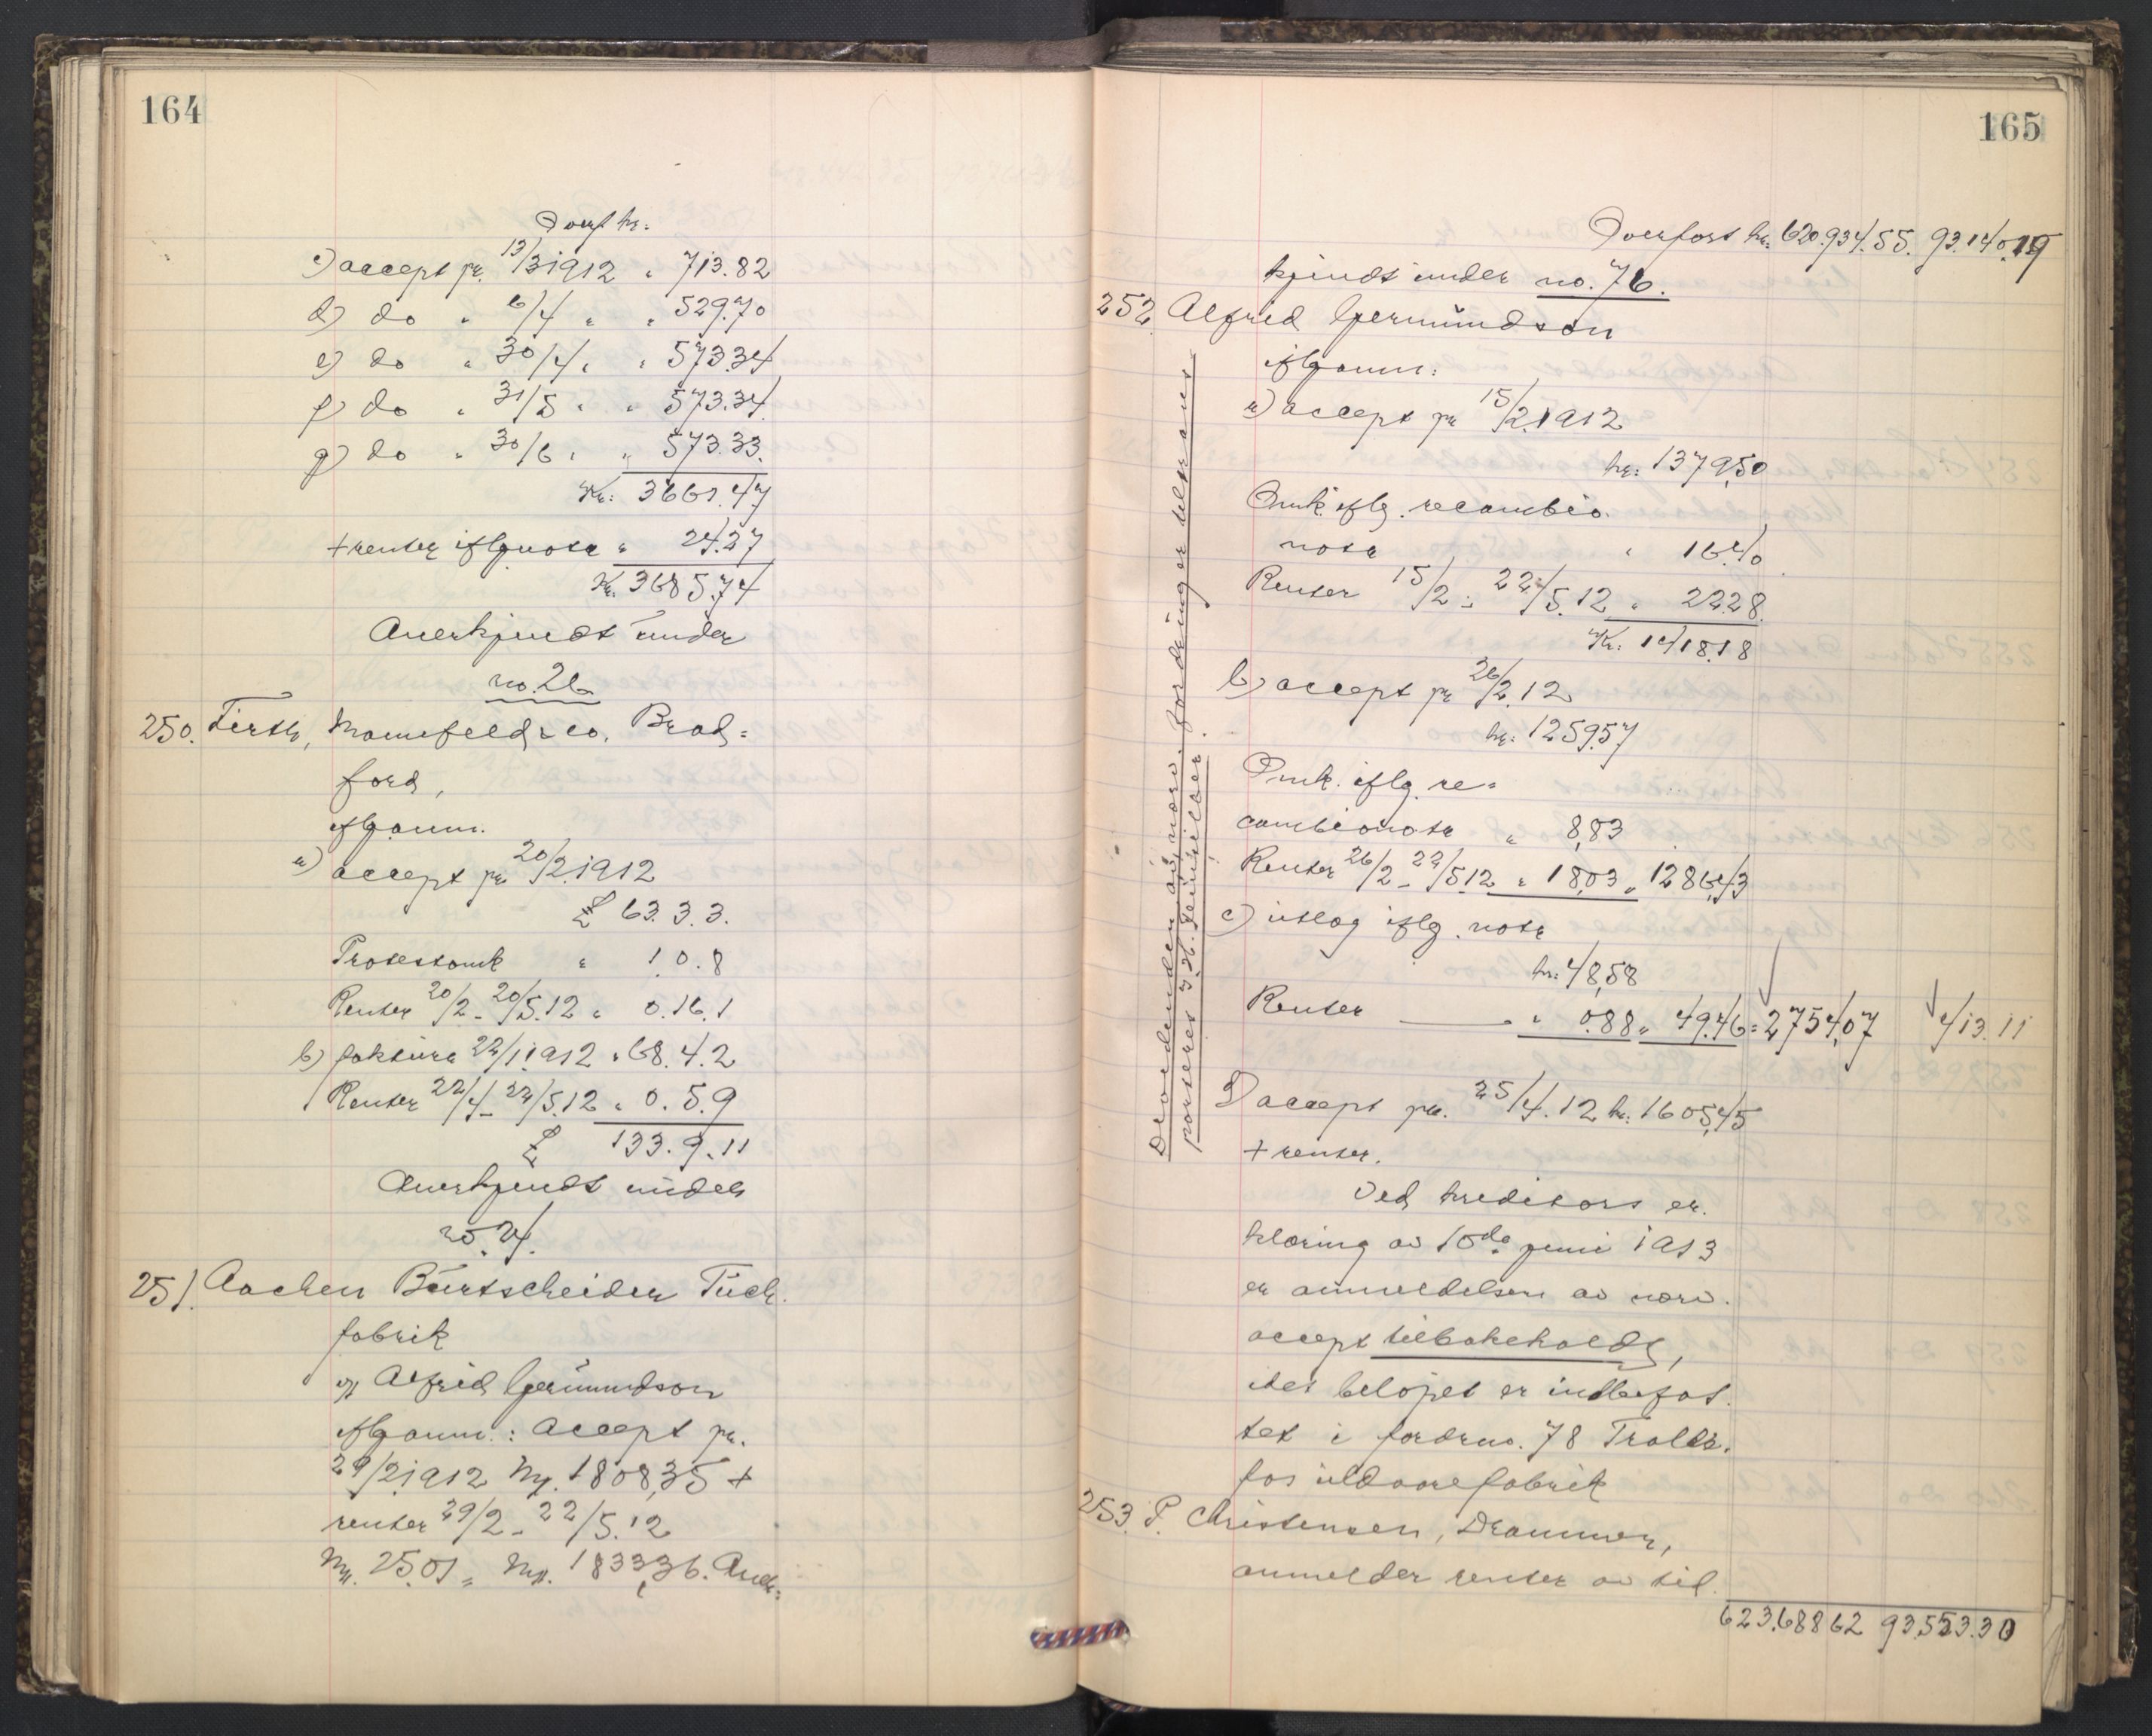 164
Overf kr.
c) accept pr. 13/3 1912 " 713.82
d) do " 6/4 " " 529.70
e) do " 30/4 " " 573.34
f) do " 31/5 " " 573.34
g) do " 30/6 " " 573.33.
Kr. 3661.47
+ renter iflg nota " 24.27
Kr. 3685.74
Anerkjendt under
no. 26
250. Firth, & Co. Brad=
ford,
iflg anm.
a) accept pr 20/2.1912
£ 63.3.3.
Protestomk " 1.0.8
Renter 20/2 - 20/5.12 " 0.16.1
b) faktura 22/1.1912 " 68.4.2
Renter 22/4 - 22/5.12 " 0.5.9
£ 133.9.11
Anerkjendt under
no. 24.
251. Aachen Burtscheider Tuch.
fabrik
v/ Alfred Germundson
iflg anm.: Accept pr.
29/2 1912 Mk. 1808,35 +
renter 29/2 - 22/5.12
Mk. 25.01 = Mk. 1833,36. Aner=
165
Overført kr. 620.934.55. 93.140.19
kjendt under no. 76.
252 Alfred Germundson
iflg anm:
a) accept pr 15/2.1912
kr. 1379,50
Omk. iflg. recambio.
nota " 16.40
Renter 15/2 - 22/5.12 " 22.28
Kr. 1418.18
b) accept pr 26/2.12
kr. 1259,57
Omk. iflg. re=
cambionota " 8,83
Renter 26/2 - 22/5.12 " 18,03 " 1286,43
c) utlæg iflg. nota
kr. 48,58
Renter " 0.88 " 49.46 = 2754,07 413.11
d) accept pr. 25/4.12 kr. 1605,45
+ renter.
Ved kreditors er.
klæring av 10de juni 1913
er anmeldelsen av nærv.
accept tilbakeholdt,
idet beløpet er indbefat.
tet i fordr no. 78 Trolla.
fos uldvarefabrik
253. P. Christensen, Drammen,
anmelder renter av til.
623.688 62 93.553.30
Dividenden av nærv. fordringer